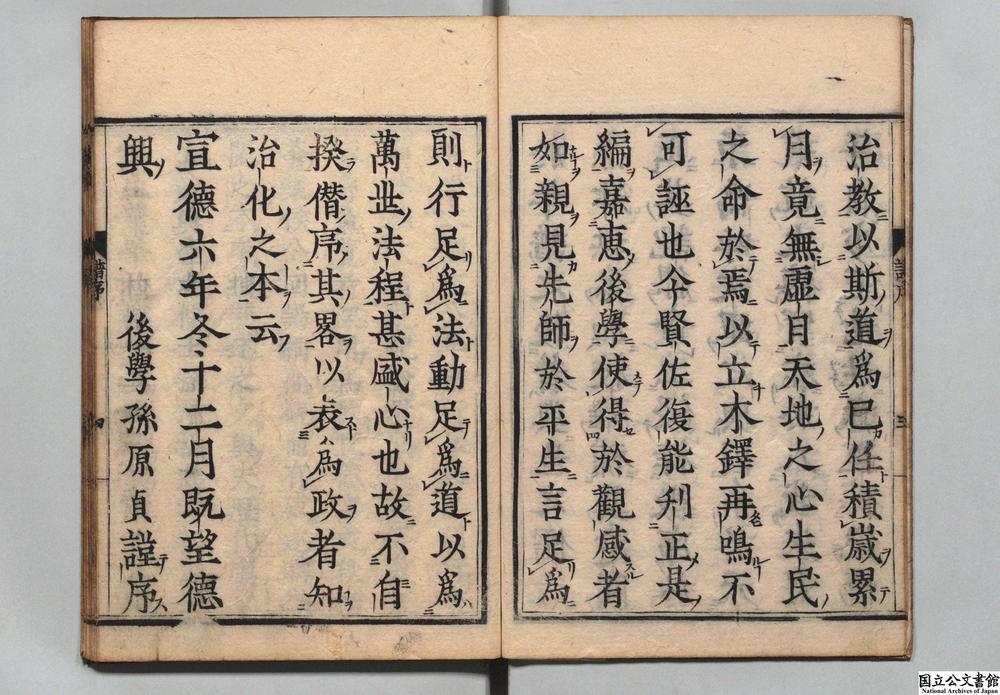 治教以斯道爲己任積歲累
月竟無虛日天地之心生民
之命於焉以立木鐸再鳴不
可誣也今賢佐復能刋正是
編嘉惠後學使得於觀感者
如親見先師於平生言足爲
則行足爲法動足爲道以爲
萬世法程甚盛心也故不自
揆僣序其畧以表爲政者知
治化之本云
宣德六年冬十二月既望德
興 後學孫原貞謹序
譜序
三
譜序
四
国立公文書館
National Archives of Japan